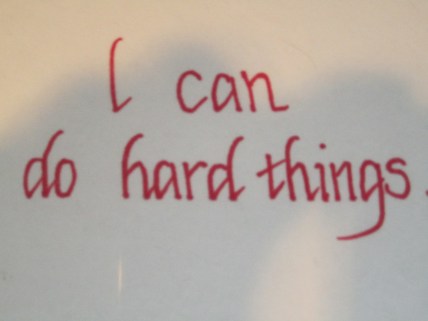 I can
do hard things.